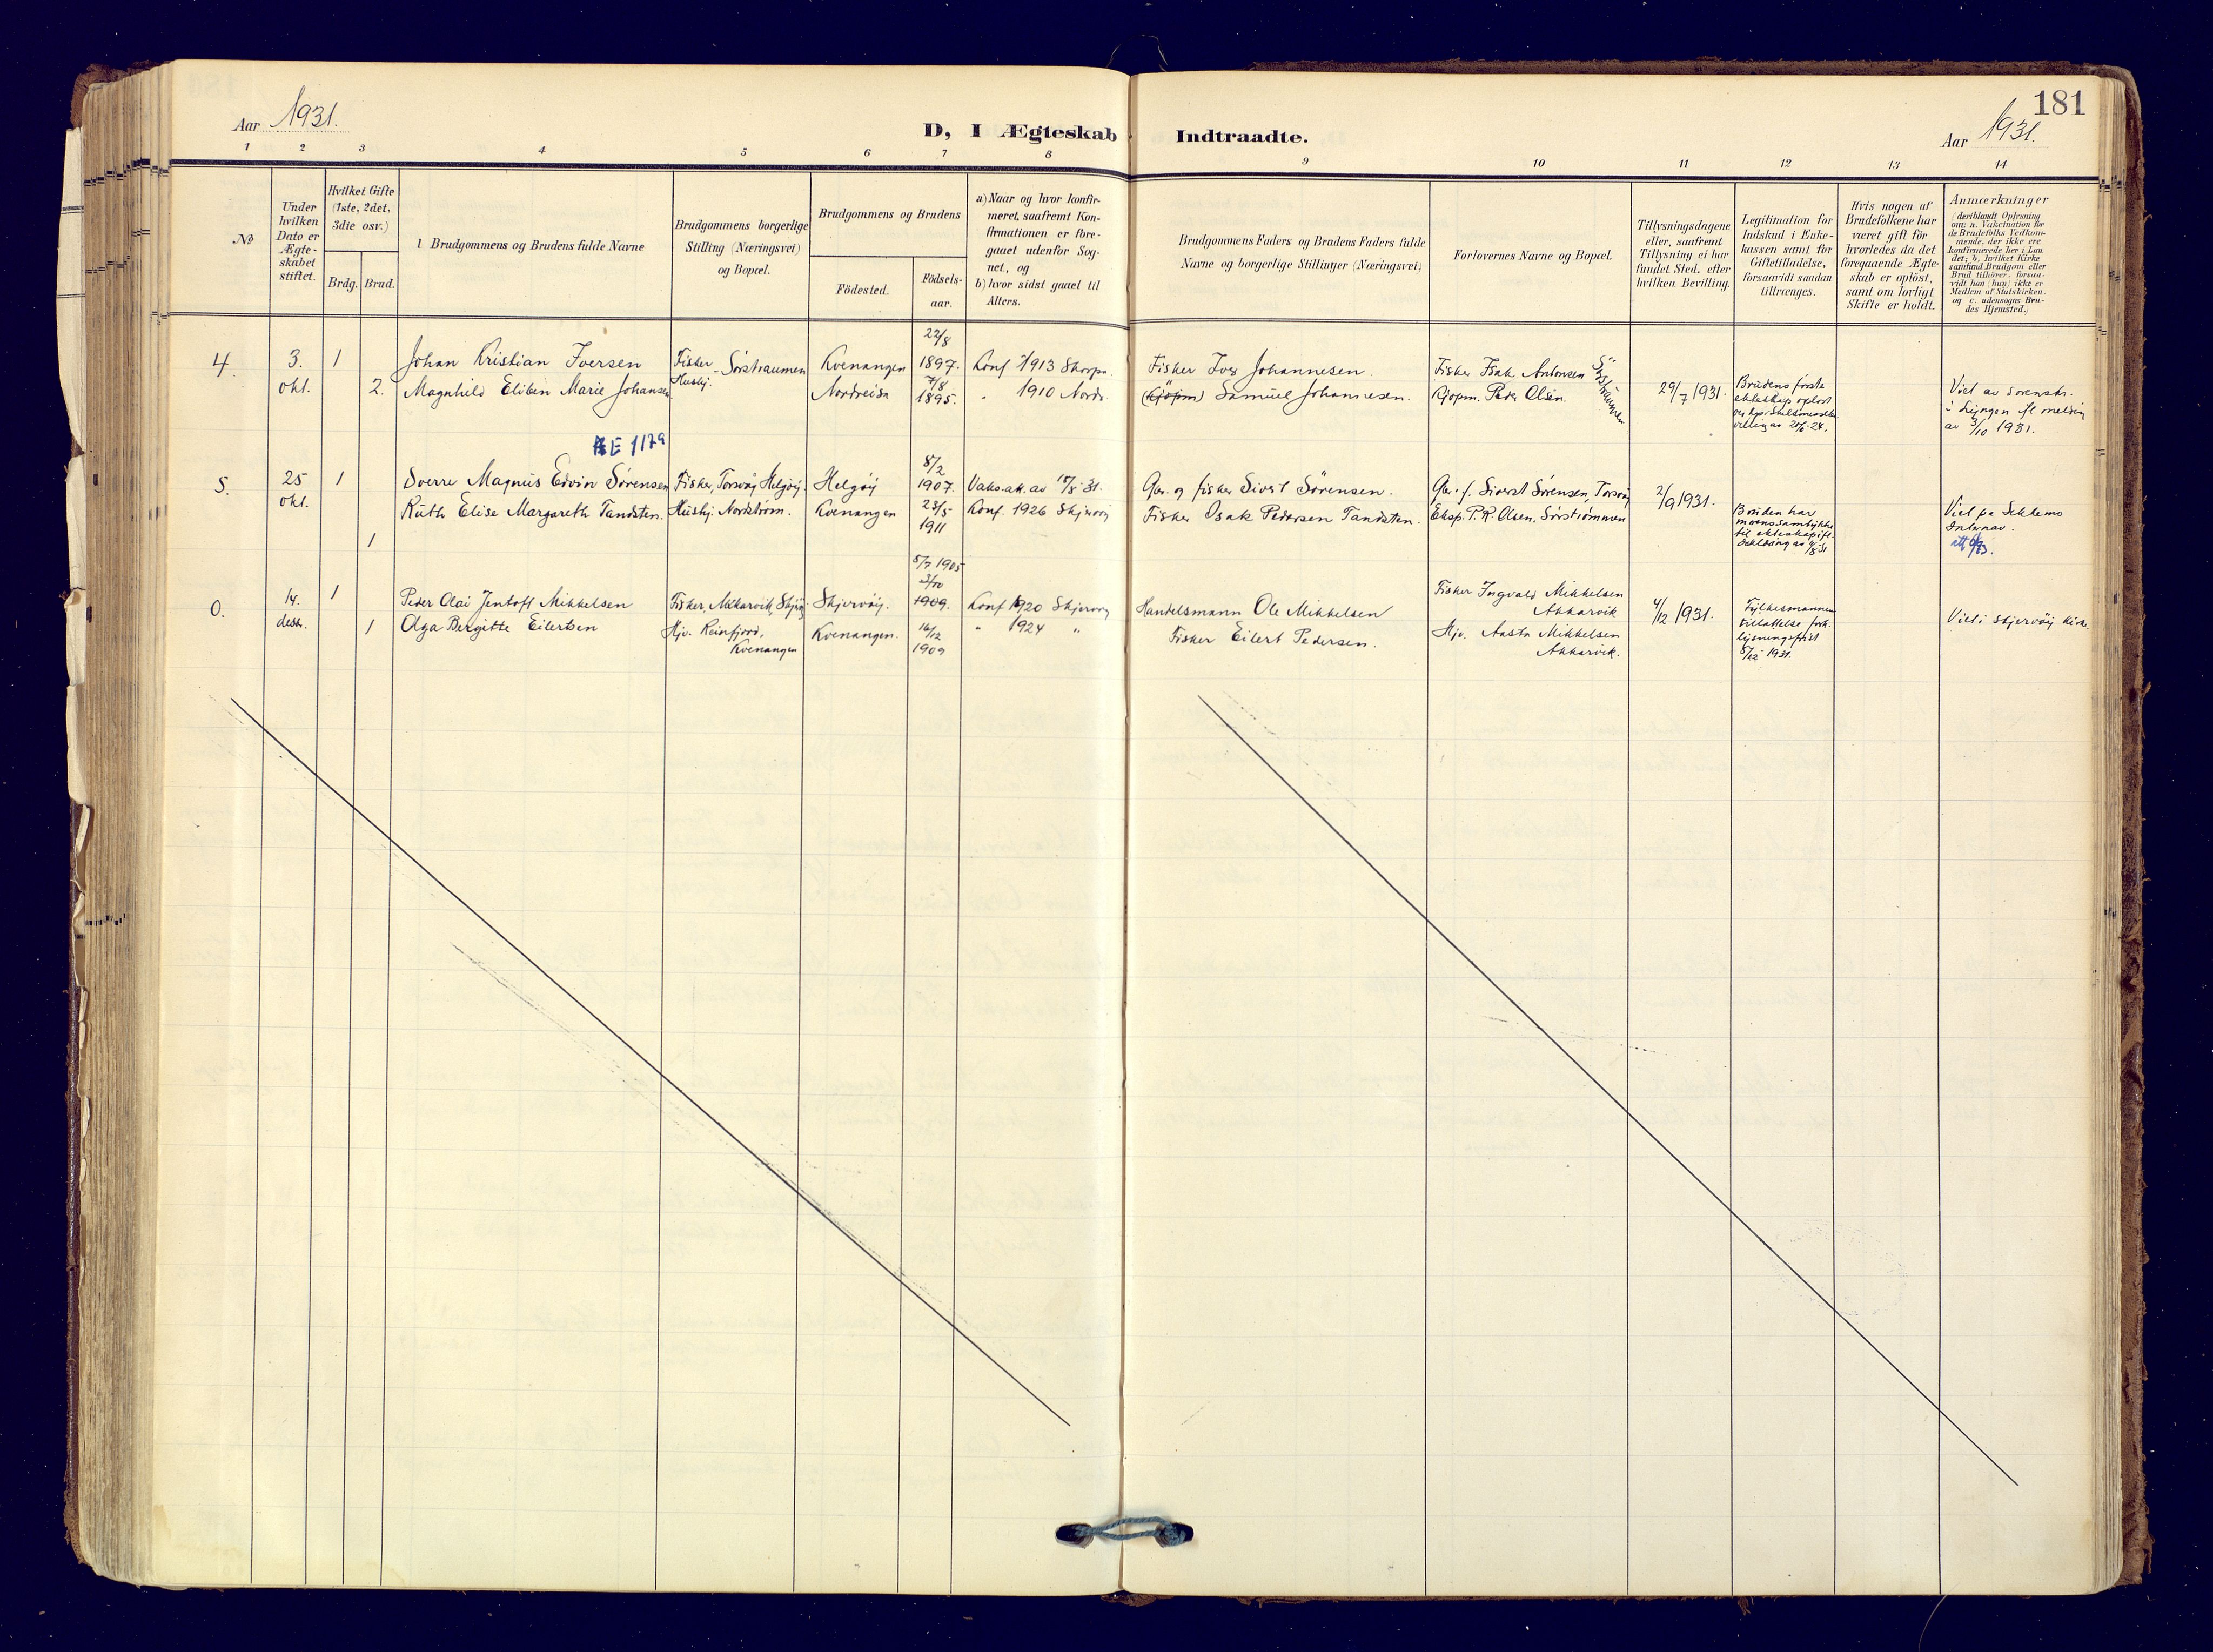 181
Aar 1931.
D, I Ægteskab Indtraadte.
Aar 1931.
1 2 3 4 5 6 7 8 9 10 11 12 13 14
№
Under
hvilken
Dato er
Ægte-
skabet
stiftet.
Hvilket Gifte
(1ste, 2det,
3die osv.)
Brdg.
Brud.
Brudgommens og Brudens fulde Navne
Brudgommens borgerlige
Stilling (Næringsvei)
og Bopæl.
Brudgommens og Brudens
Födested.
Födsels-
aar.
a) Naar og hvor konfir-
meret, saafremt Kon-
firmationen er fore-
gaaet udenfor Sog-
net, og
b) hvor sidst gaaet til
Alters.
Brudgommens Faders og Brudens Faders fulde
Navne og borgerlige Stillinger (Næringsvei)
Forlovernes Navne og Bopæl.
Tillysningsdagene
eller, saafremt
Tillysning ei har
fundet Sted, efter
hvilken Bevilling.
Legitimation for
Indskud i Enke-
kassen samt for
Giftetilladelse,
forsaavidt saadan
tiltrænges.
Hvis nogen af
Brudefolkene har
været gift før
hvorledes da det
foregaaende Ægte-
skab er oplöst,
samt om lovligt
Skifte er holdt.
Anmærkninger
(deriblandt Oplysning
om: a. Vakcination for
de Brudefolks Vedkom-
mende, der ikke ere
konfirmerede her i Lan-
det; b. hvilket Kirke
samfund Brudgom eller
Brud tilhörer, forsaa-
vidt han (hun) ikke er
Medlem af Statskirken.
og c. udensogns Bru-
des Hjemsted.)
4.
3.
okt.
1
2.
Johan Kristian Iversen
Magnhild Eliben Marie Johansen
Fisker
Husbj.
Sørstraumen
Kvenangen
Nordreisa
22/8
1897.
7/8
1895.
Konf 1913
1910
Fisker Iver Johannesen.
(Kjöpm) Samuel Johannesen.
Fisker Isak Antonsen
Kjöpm. Peder Olsen.
29/7 1931.
Brudens förste
ekteskap oplöst
Viet av Sorenskr.
i Lyngen fl melding
av 3/10 1931.
E 1179
5.
25
okt.
1
1
Sverre Magnus Edvin Sørensen
Ruth Elise Margareth Tandsten.
Fisker, Torsvåg Helgøy.
Husbj. Nordstrøm.
Helgøy
Kvenangen
8/2
1907.
23/5
1911
Vaks.att. av 17/8 31.
Konf. 1926 Skjervøy
Gbr. og fisker Sivert Sörensen.
Fisker Isak Pedersen Tandsten.
Gbr. f. Sivert Sørensen, Torsvåg
Eksp. P. R. Olsen, Sørstrømmen
2/9 1931.
Bruden har
morens samtykke
til ekteskap ifl.
Viet på Sekkemo
Internav.
14.
desb.
1
1
Peder Olai Jentoft Mikkelsen
Olga Bergitte Eilertsen
Fisker, Akkarvik, Skjervøy
Hjv. Reinfjord,
Kvenangen
Skjervöy.
Kvenangen.
5/7 1905
1909.
16/12
1909
Konf 1920 Skjervøy
" 1924 "
Handelsmann Ole Mikkelsen
Fisker Eilert Pedersen.
Fisker Ingvald Mikkelsen
Akkarvik
Hjv. Aasta Mikkelsen
Akkarvik.
4/12 1931.
Fylkesmannen
tillatelse fork.
lysningsfrist
8/12 1931.
Viet i Skjervöy Kirke.